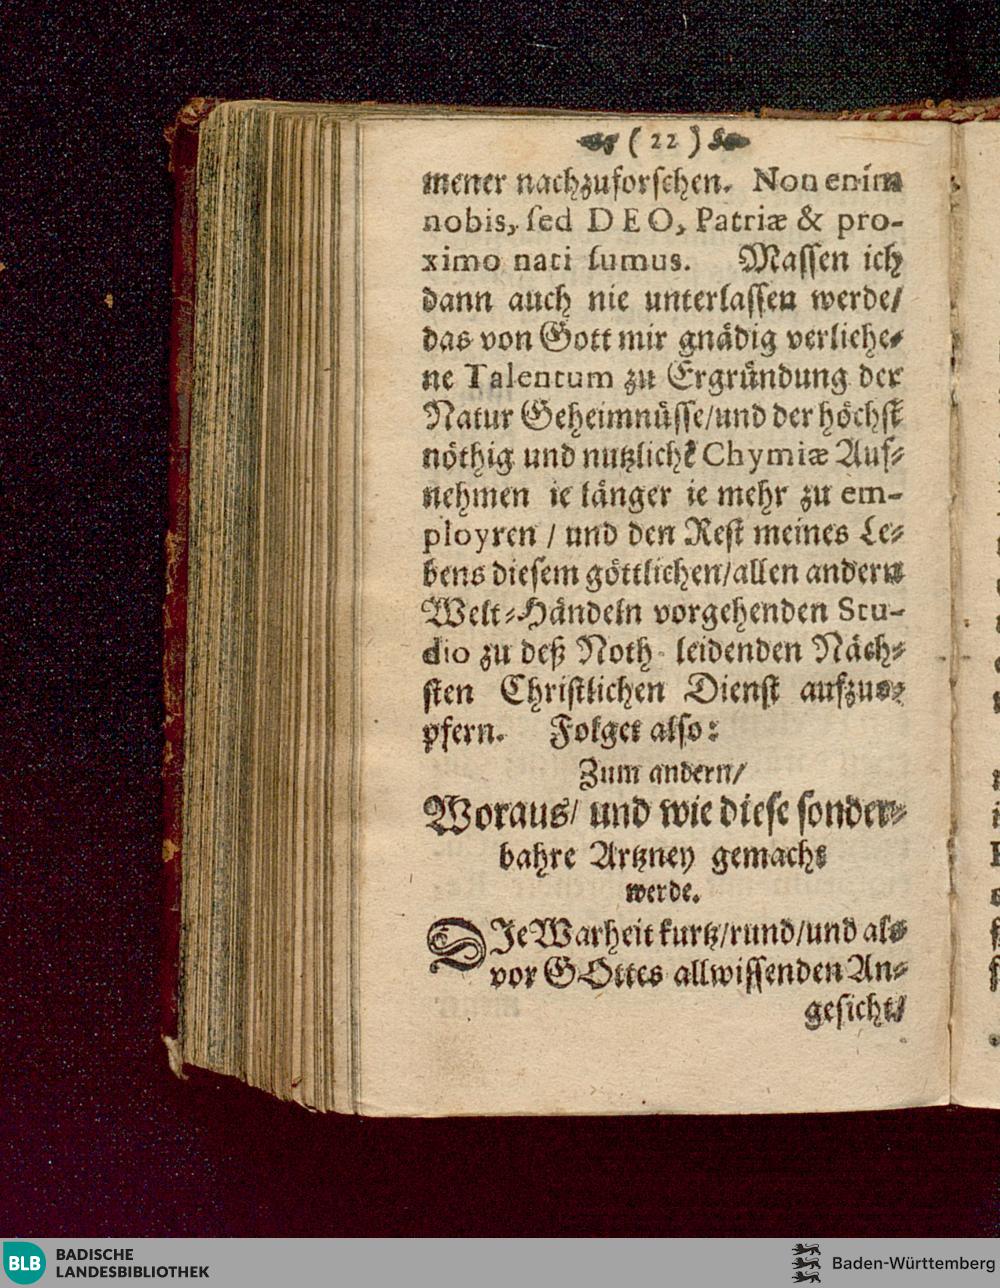 ( 22 )
mener nachzuforschen. Non enim
nobis, sed DEO, Patriæ & pro-
ximo nati sumus. Massen ich
dann auch nie unterlassen werde/
das von Gott mir gnädig verliehe-
ne Talentum zu Ergründung der
Natur Geheimnüsse/und der höchst
nöthig und nutzliche Chymiæ Auf-
nehmen ie länger ie mehr zu em-
ployren / und den Rest meines Le-
bens diesem göttlichen/allen andern
Welt-Händeln vorgehenden Stu-
dio zu deß Noth-leidenden Näch-
sten Christlichen Dienst aufzuo-
pfern. Folget also:
Zum andern/
Woraus/ und wie diese sonder-
bahre Artzney gemacht
werde.
DIe Warheit kurtz/rund/und als
vor GOttes allwissenden An-
gesicht/
BLB BADISCHE
LANDESBIBLIOTHEK
Baden-Württemberg